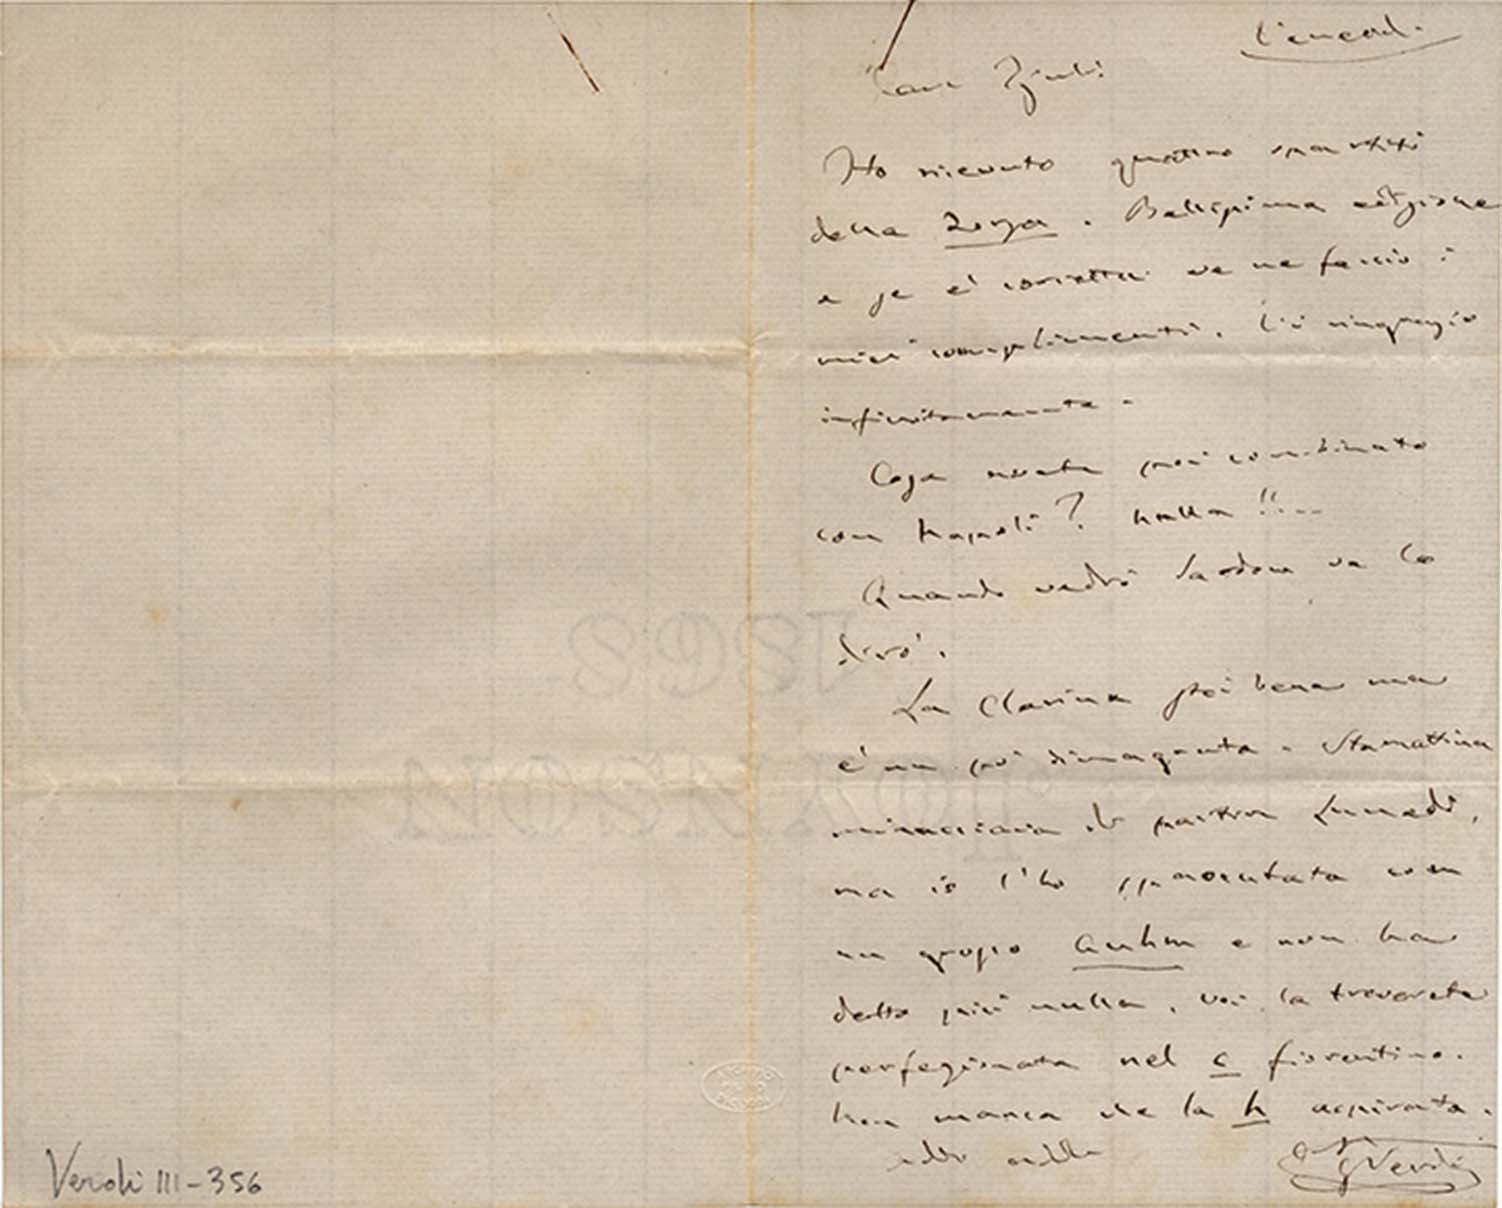 Venerdì.
Caro
Ho ricevuto quattro spartiti
della Forza. Bellissima edizione
e se è corretta ve ne faccio i
miei complimenti. Vi ringrazio
infinitamente.
Cosa avete poi combinato
con Napoli? Nulla!!...
Quando vedrò va lo
dirò.
La Clarina sta bene ma
è un po' dimagrata. Stamattina
minacciava di partire Lunedì,
ma io l'ho spaventata con
un grosso auhm e non ha
detto più nulla. Voi la troverete
perfezionata nel c fiorentino.
Non manca che la h aspirata.
addio addio
G Verdi
1868
TOVNSON
Verdi III-356